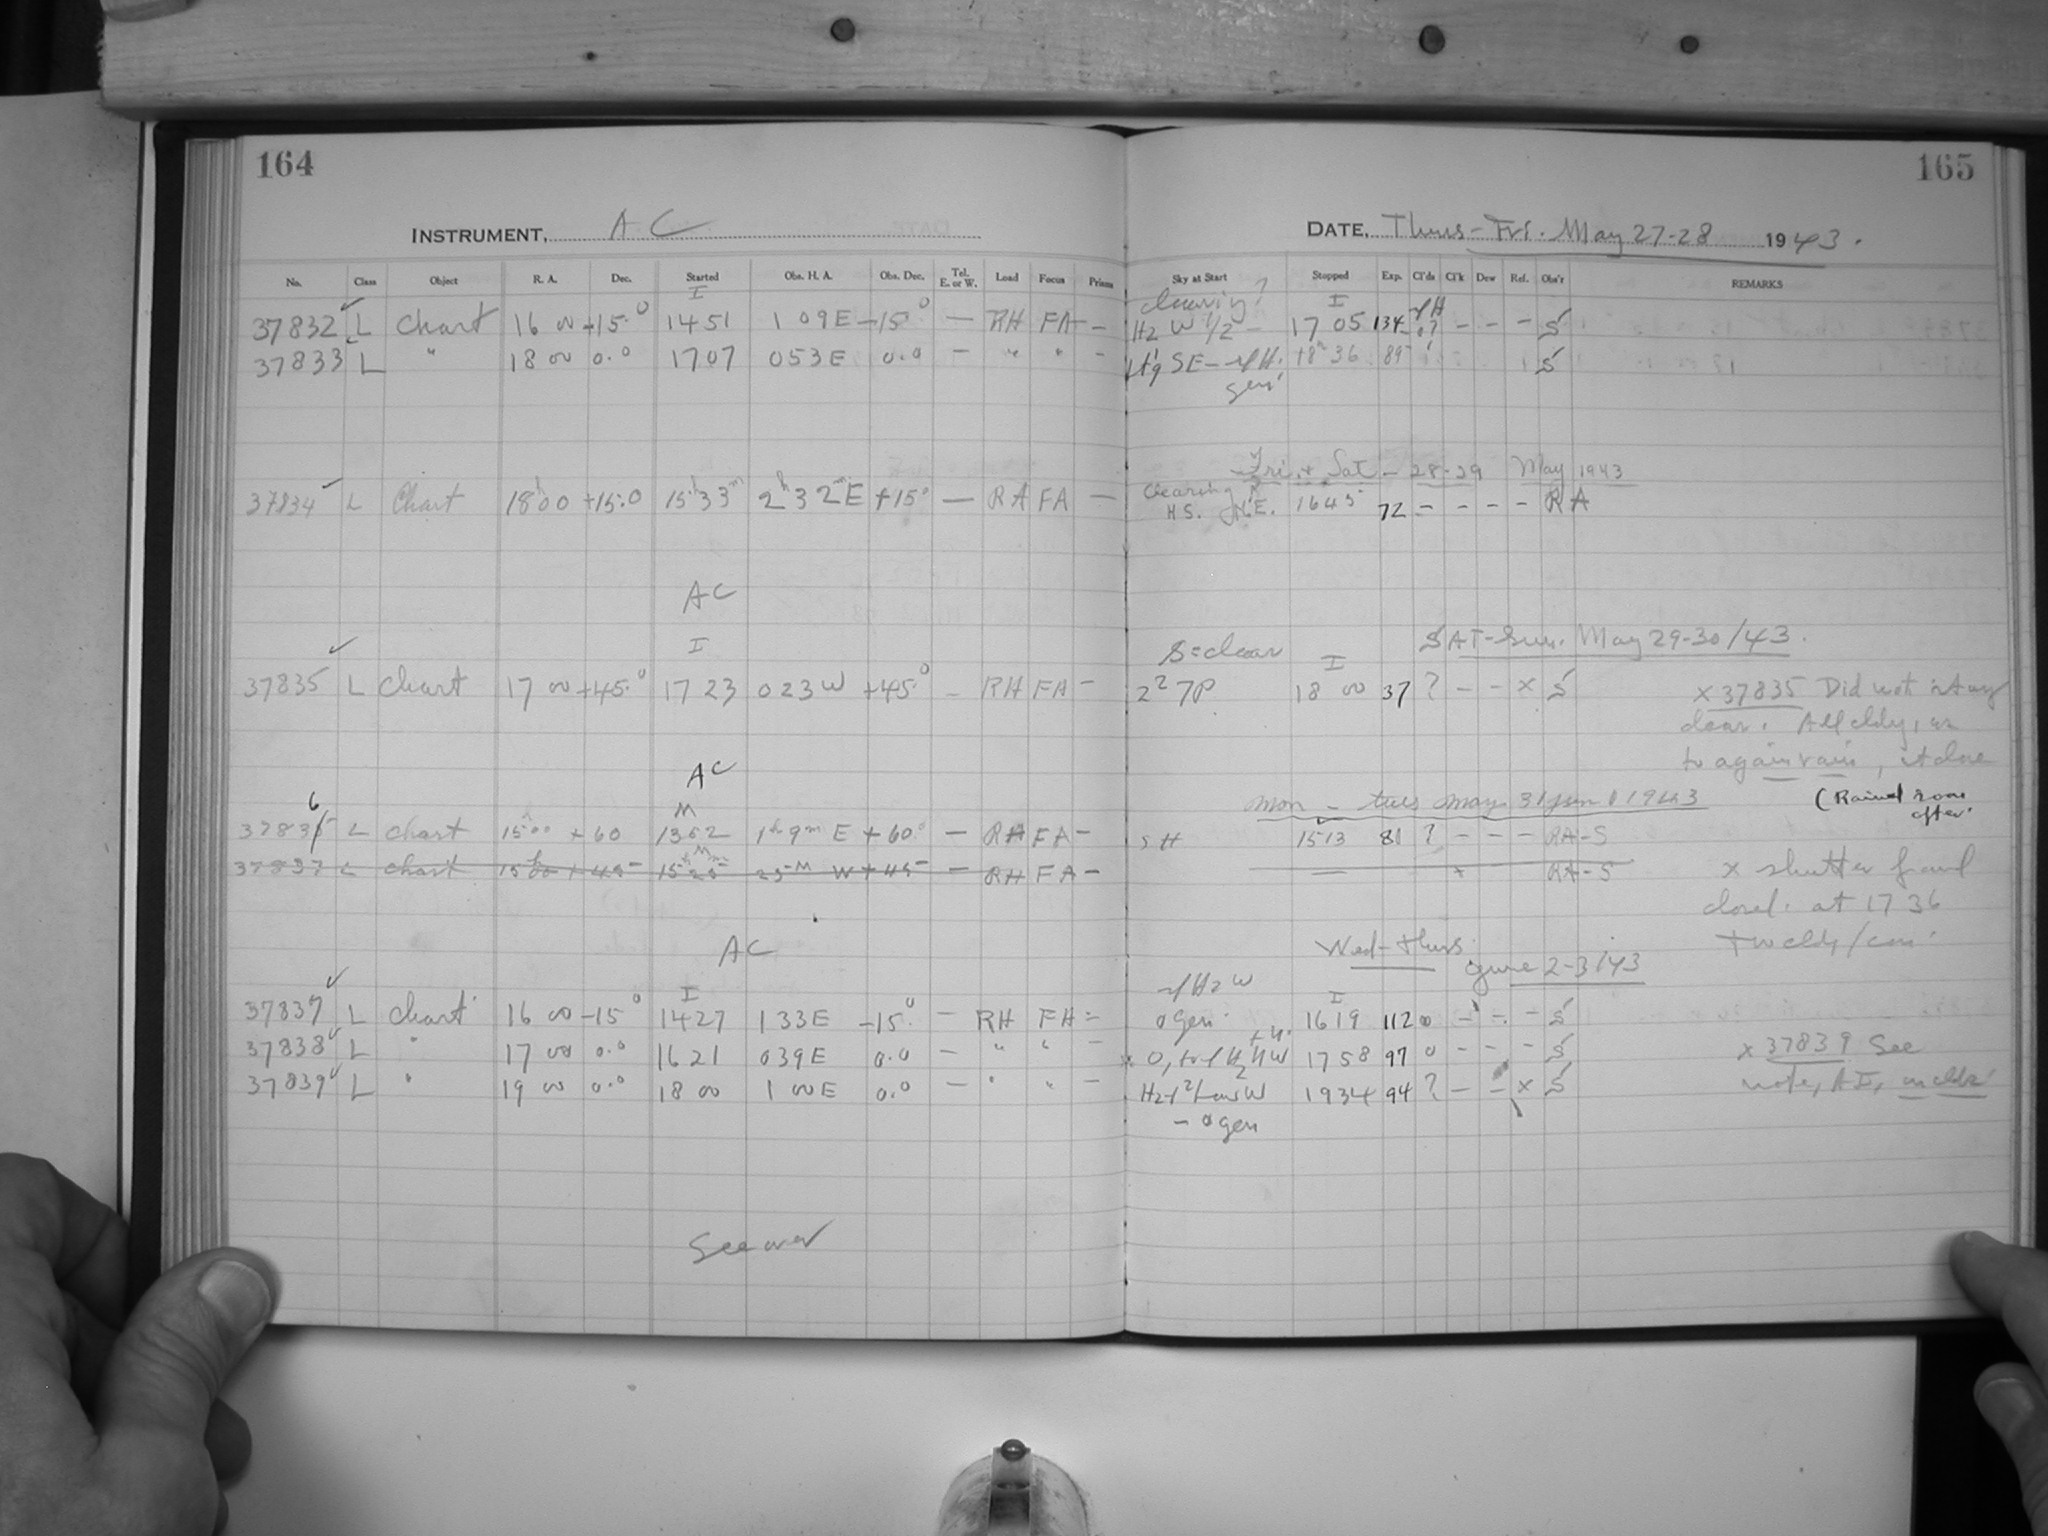 164
165
INSTRUMENT, A C
DATE, Thurs-Fri. May 27-28 1943.
No. Class Object R. A. Dec. Started Obs. H. A. Obs. Dec. Tel. E. or W. Load Focus Prism Sky at Start Stopped Exp. Cl'ds Cl'k Dew Ref. Obs'r REMARKS
I clearing? I
37832 L Chart 16 00 +15.0 1451 1 09E -15° — RH FA — Hz W 1/2 - 1705 134 - - - S
37833 L " 18 00 0.0 1707 053E 0.0 — " " - SE 18 36 89 S
gen'
Fri. + Sat - 28-29 May 1943
37834 L Chart 18h00 +15.0 15h33m 2h32mE +15° — RA FA — Clearing 1645 72 - - - - RA
HS. NE.
AC
I S=clear I SAT-Sun. May 29-30/43.
37835 L Chart 17 00 +45.° 1723 023W +45.° - RH FA - 18 00 37 ? - - x S x 37835 Did not
clear. All cldy,
to again rain,
AC
M Mon - tues may 31 jun 1 1943 (Rained soon after.
37836 L chart 1500 +60 1352 1h9m E +60° — RA FA - SH 1513 81 ? - - - RA-S
37837 L chart 1500 +45 1525 25M W +45 — RH FA - — x RA-S x shutter found
closed. at 1736
AC
Wed-thurs.
June 2-3/43
I I
37837 L Chart 16 00 -15° 1427 133E -15.° - RH FA - 0 gen. 1619 112 0 - - - S
37838 L " 17 00 0.0 1621 039E 0.0 — " " - 1758 97 0 - - - S x 37839 See
37839 L " 19 00 0.0 18 00 1 00E 0.0 — " " - 1934 94 ? - - x S note,
- 0 gen
See over